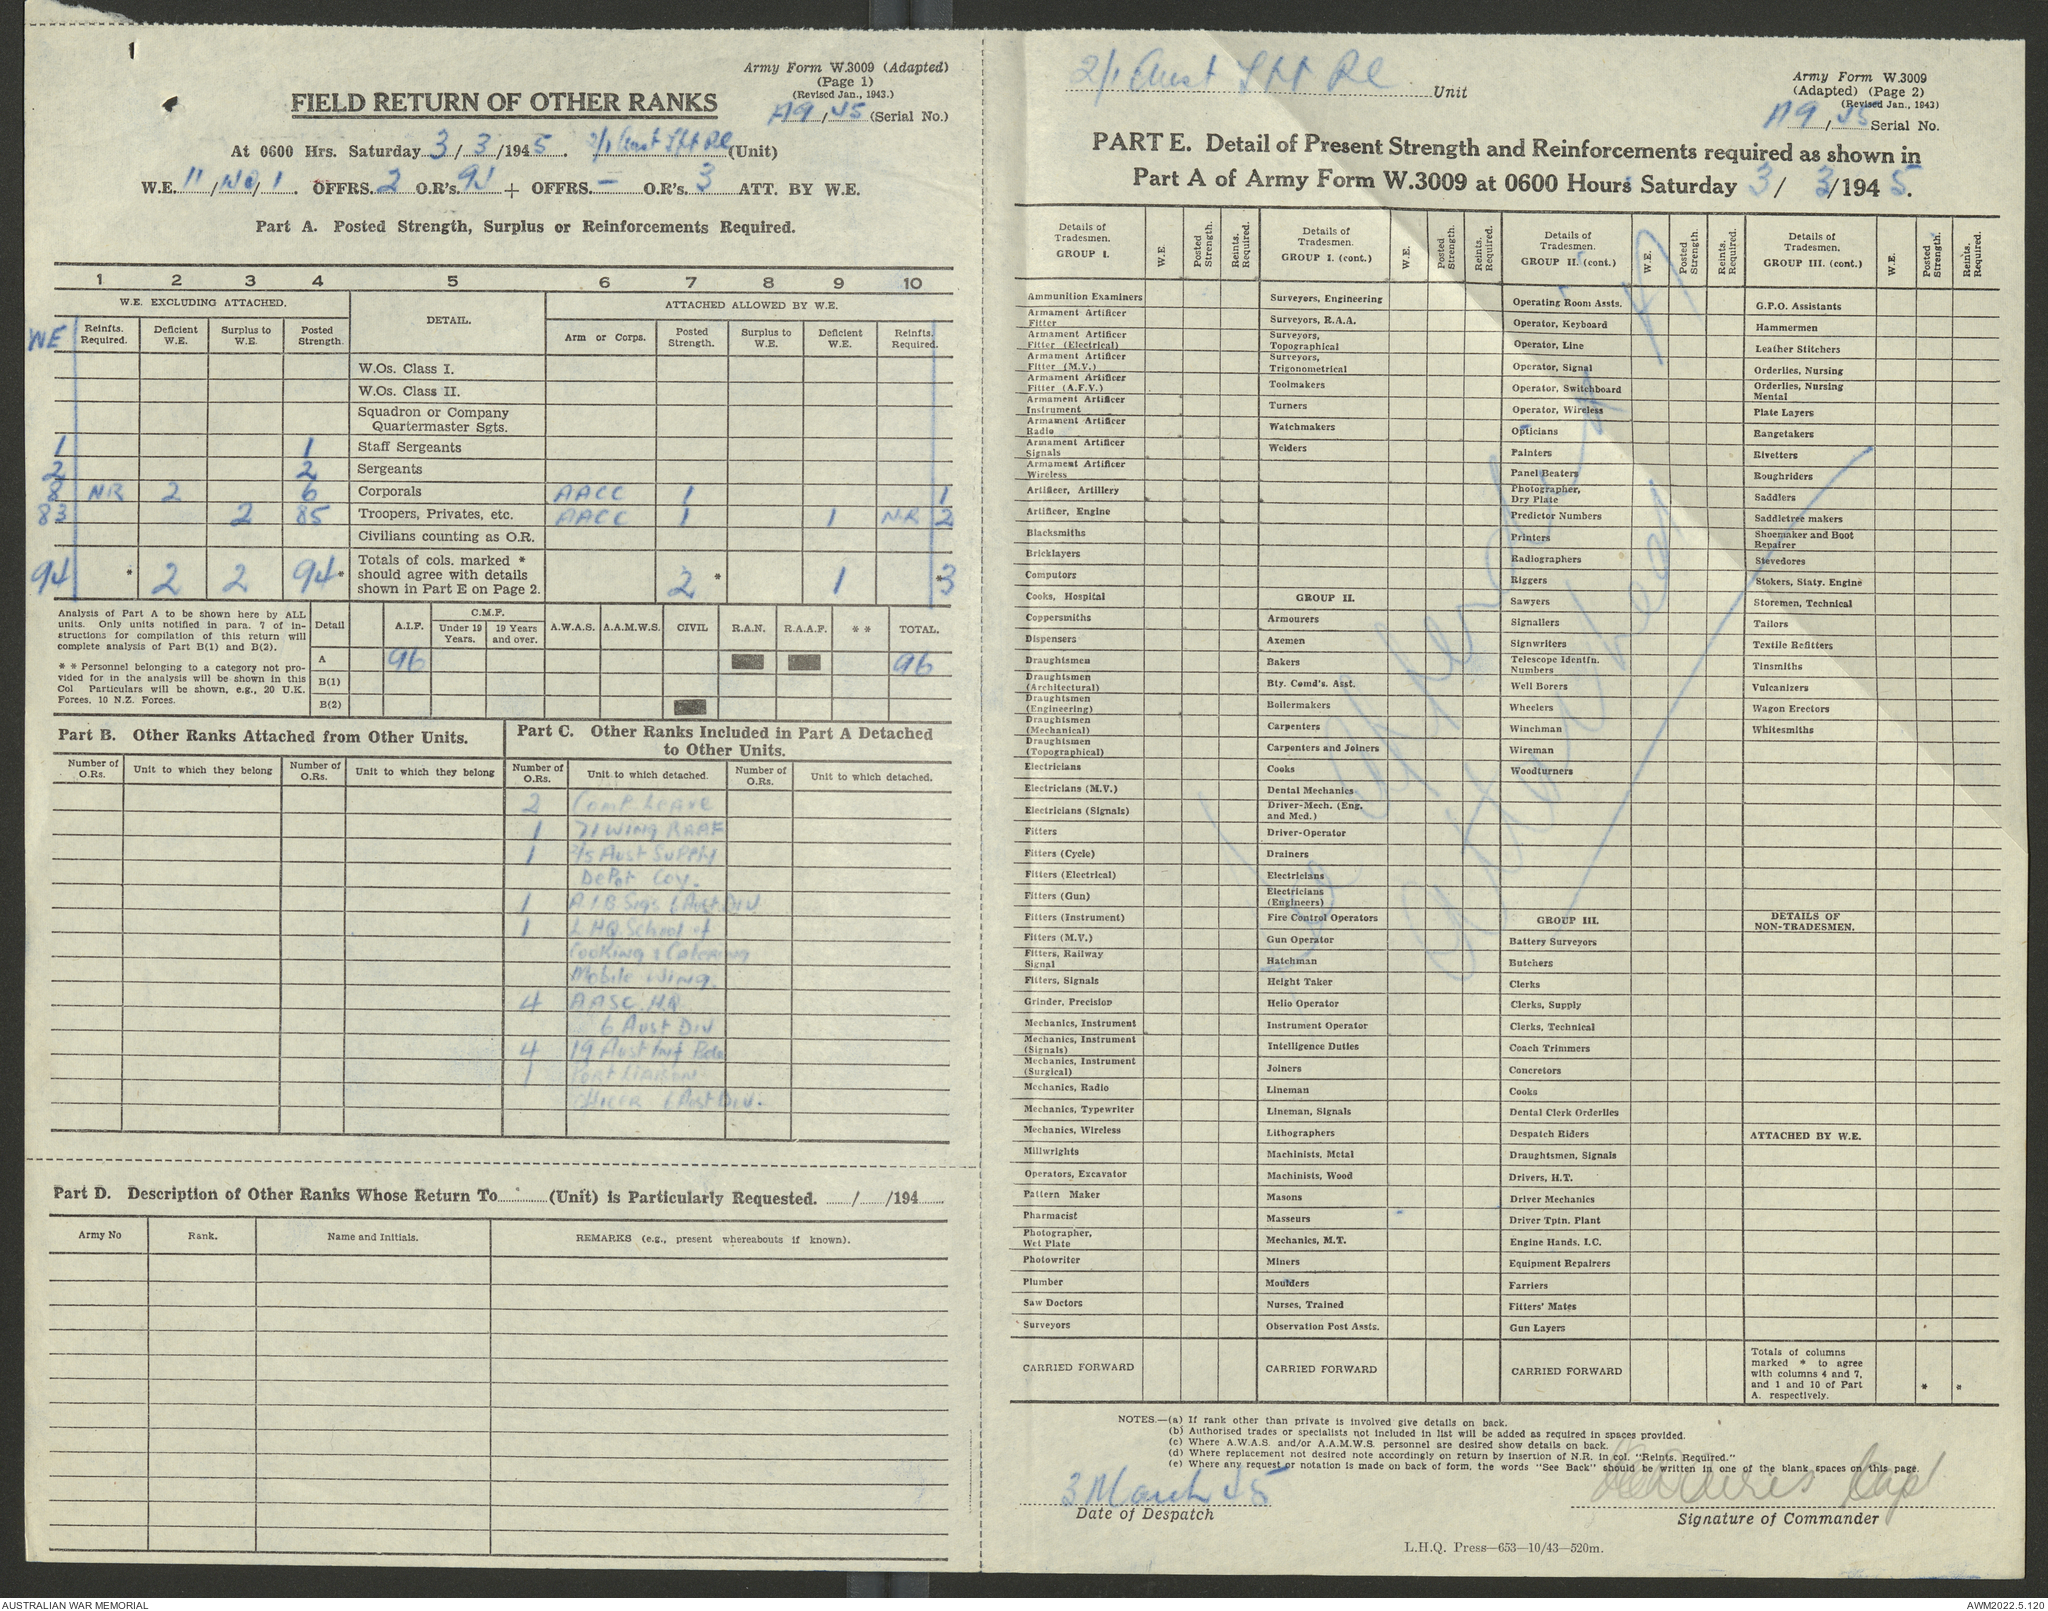 Army Form W.3009 (Adapted)
(Page 1)
(Revised Jan., 1943.)
FIELD RETURN OF OTHER RANKS
A9/45 (Serial No.)
At 0600 Hrs. Saturday 3/3/1945. 2/1 Aust (Unit)
W.E. 11/ /1. OFFRS. 2 O.R's. 94 + OFFRS. – O.R's. 3 ATT. BY W.E.
Part A. Posted Strength, Surplus or Reinforcements Required.
1 2 3 4 5 6 7 8 9 10
W.E. EXCLUDING ATTACHED. DETAIL. ATTACHED ALLOWED BY W.E.
WE Reinfts. Required. Deficient W.E. Surplus to W.E. Posted Strength. Arm or Corps. Posted Strength. Surplus to W.E. Deficient W.E. Reinfts. Required.
W.Os. Class I.
W.Os. Class II.
Squadron or Company
Quartermaster Sgts.
1 1 Staff Sergeants
2 2 Sergeants
8 NR 2 6 Corporals AACC 1 1
83 2 85 Troopers, Privates, etc. AACC 1 1 NR 2
Civilians counting as O.R.
94 * 2 2 94* Totals of cols. marked * should agree with details shown in Part E on Page 2. 2 * 1 *3
Analysis of Part A to be shown here by ALL
units. Only units notified in para. 7 of in-
structions for compilation of this return will
complete analysis of Part B(1) and B(2).
* * Personnel belonging to a category not pro-
vided for in the analysis will be shown in this
Col Particulars will be shown, e.g., 20 U.K.
Forces, 10 N.Z. Forces.
Detail A.I.F. C.M.F. Under 19 Years. 19 Years and over. A.W.A.S. A.A.M.W.S. CIVIL R.A.N. R.A.A.F. * * TOTAL.
A 96 96
B(1)
B(2)
Part B. Other Ranks Attached from Other Units.
Number of O.Rs. Unit to which they belong Number of O.Rs. Unit to which they belong
Part C. Other Ranks Included in Part A Detached
to Other Units.
Number of O.Rs. Unit to which detached. Number of O.Rs. Unit to which detached.
2 Comp. Leave
1 71 Wing RAAF
1 2/5 Aust Supply
Depot Coy.
1 A.I.B Sigs 6 Aust Div
1 L HQ School of
Cooking & Catering
Mobile Wing
4 AASC HQ
6 Aust Div
4 19 Aust Inf Bde
1 Port Liaison
Officer 6 Aust Div.
Part D. Description of Other Ranks Whose Return To (Unit) is Particularly Requested. / /194
Army No Rank. Name and Initials. REMARKS (e.g., present whereabouts if known).
2/1 Aust Unit
Army Form W.3009
(Adapted) (Page 2)
(Revised Jan., 1943)
A9/45 Serial No.
PART E. Detail of Present Strength and Reinforcements required as shown in
Part A of Army Form W.3009 at 0600 Hours Saturday 3/3/1945.
Details of Tradesmen. GROUP I. W.E. Posted Strength. Reints. Required.
Ammunition Examiners
Armament Artificer Fitter
Armament Artificer Fitter (Electrical)
Armament Artificer Fitter (M.V.)
Armament Artificer Fitter (A.F.V.)
Armament Artificer Instrument
Armament Artificer Radio
Armament Artificer Signals
Armament Artificer Wireless
Artificer, Artillery
Artificer, Engine
Blacksmiths
Bricklayers
Computors
Cooks, Hospital
Coppersmiths
Dispensers
Draughtsmen
Draughtsmen (Architectural)
Draughtsmen (Engineering)
Draughtsmen (Mechanical)
Draughtsmen (Topographical)
Electricians
Electricians (M.V.)
Electricians (Signals)
Fitters
Fitters (Cycle)
Fitters (Electrical)
Fitters (Gun)
Fitters (Instrument)
Fitters (M.V.)
Fitters, Railway Signal
Fitters, Signals
Grinder, Precision
Mechanics, Instrument
Mechanics, Instrument (Signals)
Mechanics, Instrument (Surgical)
Mechanics, Radio
Mechanics, Typewriter
Mechanics, Wireless
Millwrights
Operators, Excavator
Pattern Maker
Pharmacist
Photographer, Wet Plate
Photowriter
Plumber
Saw Doctors
Surveyors
CARRIED FORWARD
Details of Tradesmen. GROUP I. (cont.) W.E. Posted Strength. Reints. Required.
Surveyors, Engineering
Surveyors, R.A.A.
Surveyors, Topographical
Surveyors, Trigonometrical
Toolmakers
Turners
Watchmakers
Welders
GROUP II.
Armourers
Axemen
Bakers
Bty. Comd's. Asst.
Boilermakers
Carpenters
Carpenters and Joiners
Cooks
Dental Mechanics
Driver-Mech. (Eng. and Med.)
Driver-Operator
Drainers
Electricians
Electricians (Engineers)
Fire Control Operators
Gun Operator
Hatchman
Height Taker
Helio Operator
Instrument Operator
Intelligence Duties
Joiners
Lineman
Lineman, Signals
Lithographers
Machinists, Metal
Machinists, Wood
Masons
Masseurs
Mechanics, M.T.
Miners
Moulders
Nurses, Trained
Observation Post Assts.
CARRIED FORWARD
Details of Tradesmen. GROUP II. (cont.) W.E. Posted Strength. Reints. Required.
Operating Room Assts.
Operator, Keyboard
Operator, Line
Operator, Signal
Operator, Switchboard
Operator, Wireless
Opticians
Painters
Panel Beaters
Photographer, Dry Plate
Predictor Numbers
Printers
Radiographers
Riggers
Sawyers
Signallers
Signwriters
Telescope Identfn. Numbers
Well Borers
Wheelers
Winchman
Wireman
Woodturners
GROUP III.
Battery Surveyors
Butchers
Clerks
Clerks, Supply
Clerks, Technical
Coach Trimmers
Concretors
Cooks
Dental Clerk Orderlies
Despatch Riders
Draughtsmen, Signals
Drivers, H.T.
Driver Mechanics
Driver Tptn. Plant
Engine Hands. I.C.
Equipment Repairers
Farriers
Fitters' Mates
Gun Layers
CARRIED FORWARD
Details of Tradesmen. GROUP III. (cont.) W.E. Posted Strength. Reints. Required.
G.P.O. Assistants
Hammermen
Leather Stitchers
Orderlies, Nursing
Orderlies, Nursing Mental
Plate Layers
Rangetakers
Rivetters
Roughriders
Saddlers
Saddletree makers
Shoemaker and Boot Repairer
Stevedores
Stokers, Staty. Engine
Storemen, Technical
Tailors
Textile Refitters
Tinsmiths
Vulcanizers
Wagon Erectors
Whitesmiths
DETAILS OF NON-TRADESMEN.
ATTACHED BY W.E.
Totals of columns
marked * to agree
with columns 4 and 7,
and 1 and 10 of Part
A, respectively. * *
NOTES.—(a) If rank other than private is involved give details on back.
(b) Authorised trades or specialists not included in list will be added as required in spaces provided.
(c) Where A.W.A.S. and/or A.A.M.W.S. personnel are desired show details on back.
(d) Where replacement not desired note accordingly on return by insertion of N.R. in col. "Reints. Required."
(e) Where any request or notation is made on back of form, the words "See Back" should be written in one of the blank spaces on this page.
3 March 45
Date of Despatch
Capt
Signature of Commander
L.H.Q. Press—653—10/43—520m.
AUSTRALIAN WAR MEMORIAL
AWM2022.5.120